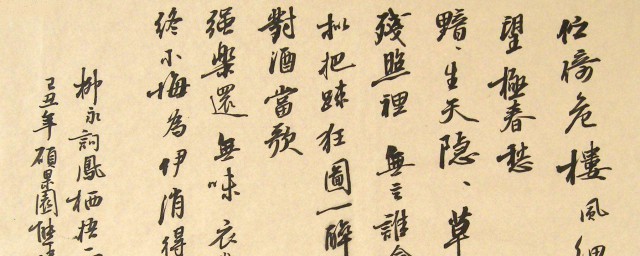 伫倚危樓風細
望極春愁
黯、生天隐、草
殘照裡 無言誰會
拟把踈狂圖一醉
對酒當歌
强樂還無味 衣
终不悔為伊消得
柳永詞鳳栖梧一
己丑年碩果園